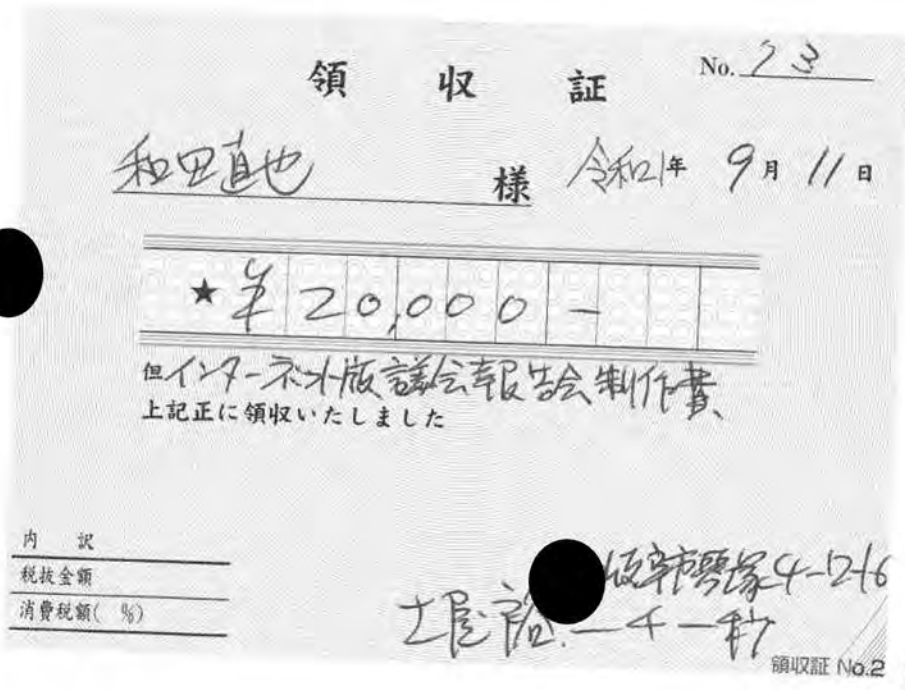 領収証
No. 73
和田直也 様
令和1年 9月 11日
★ ¥20,000-
但 インターネット版議会報告会制作費
上記正に領収いたしました
内訳
税抜金額
消費税額( %)
4-7-16
土屋
領収証 No.2